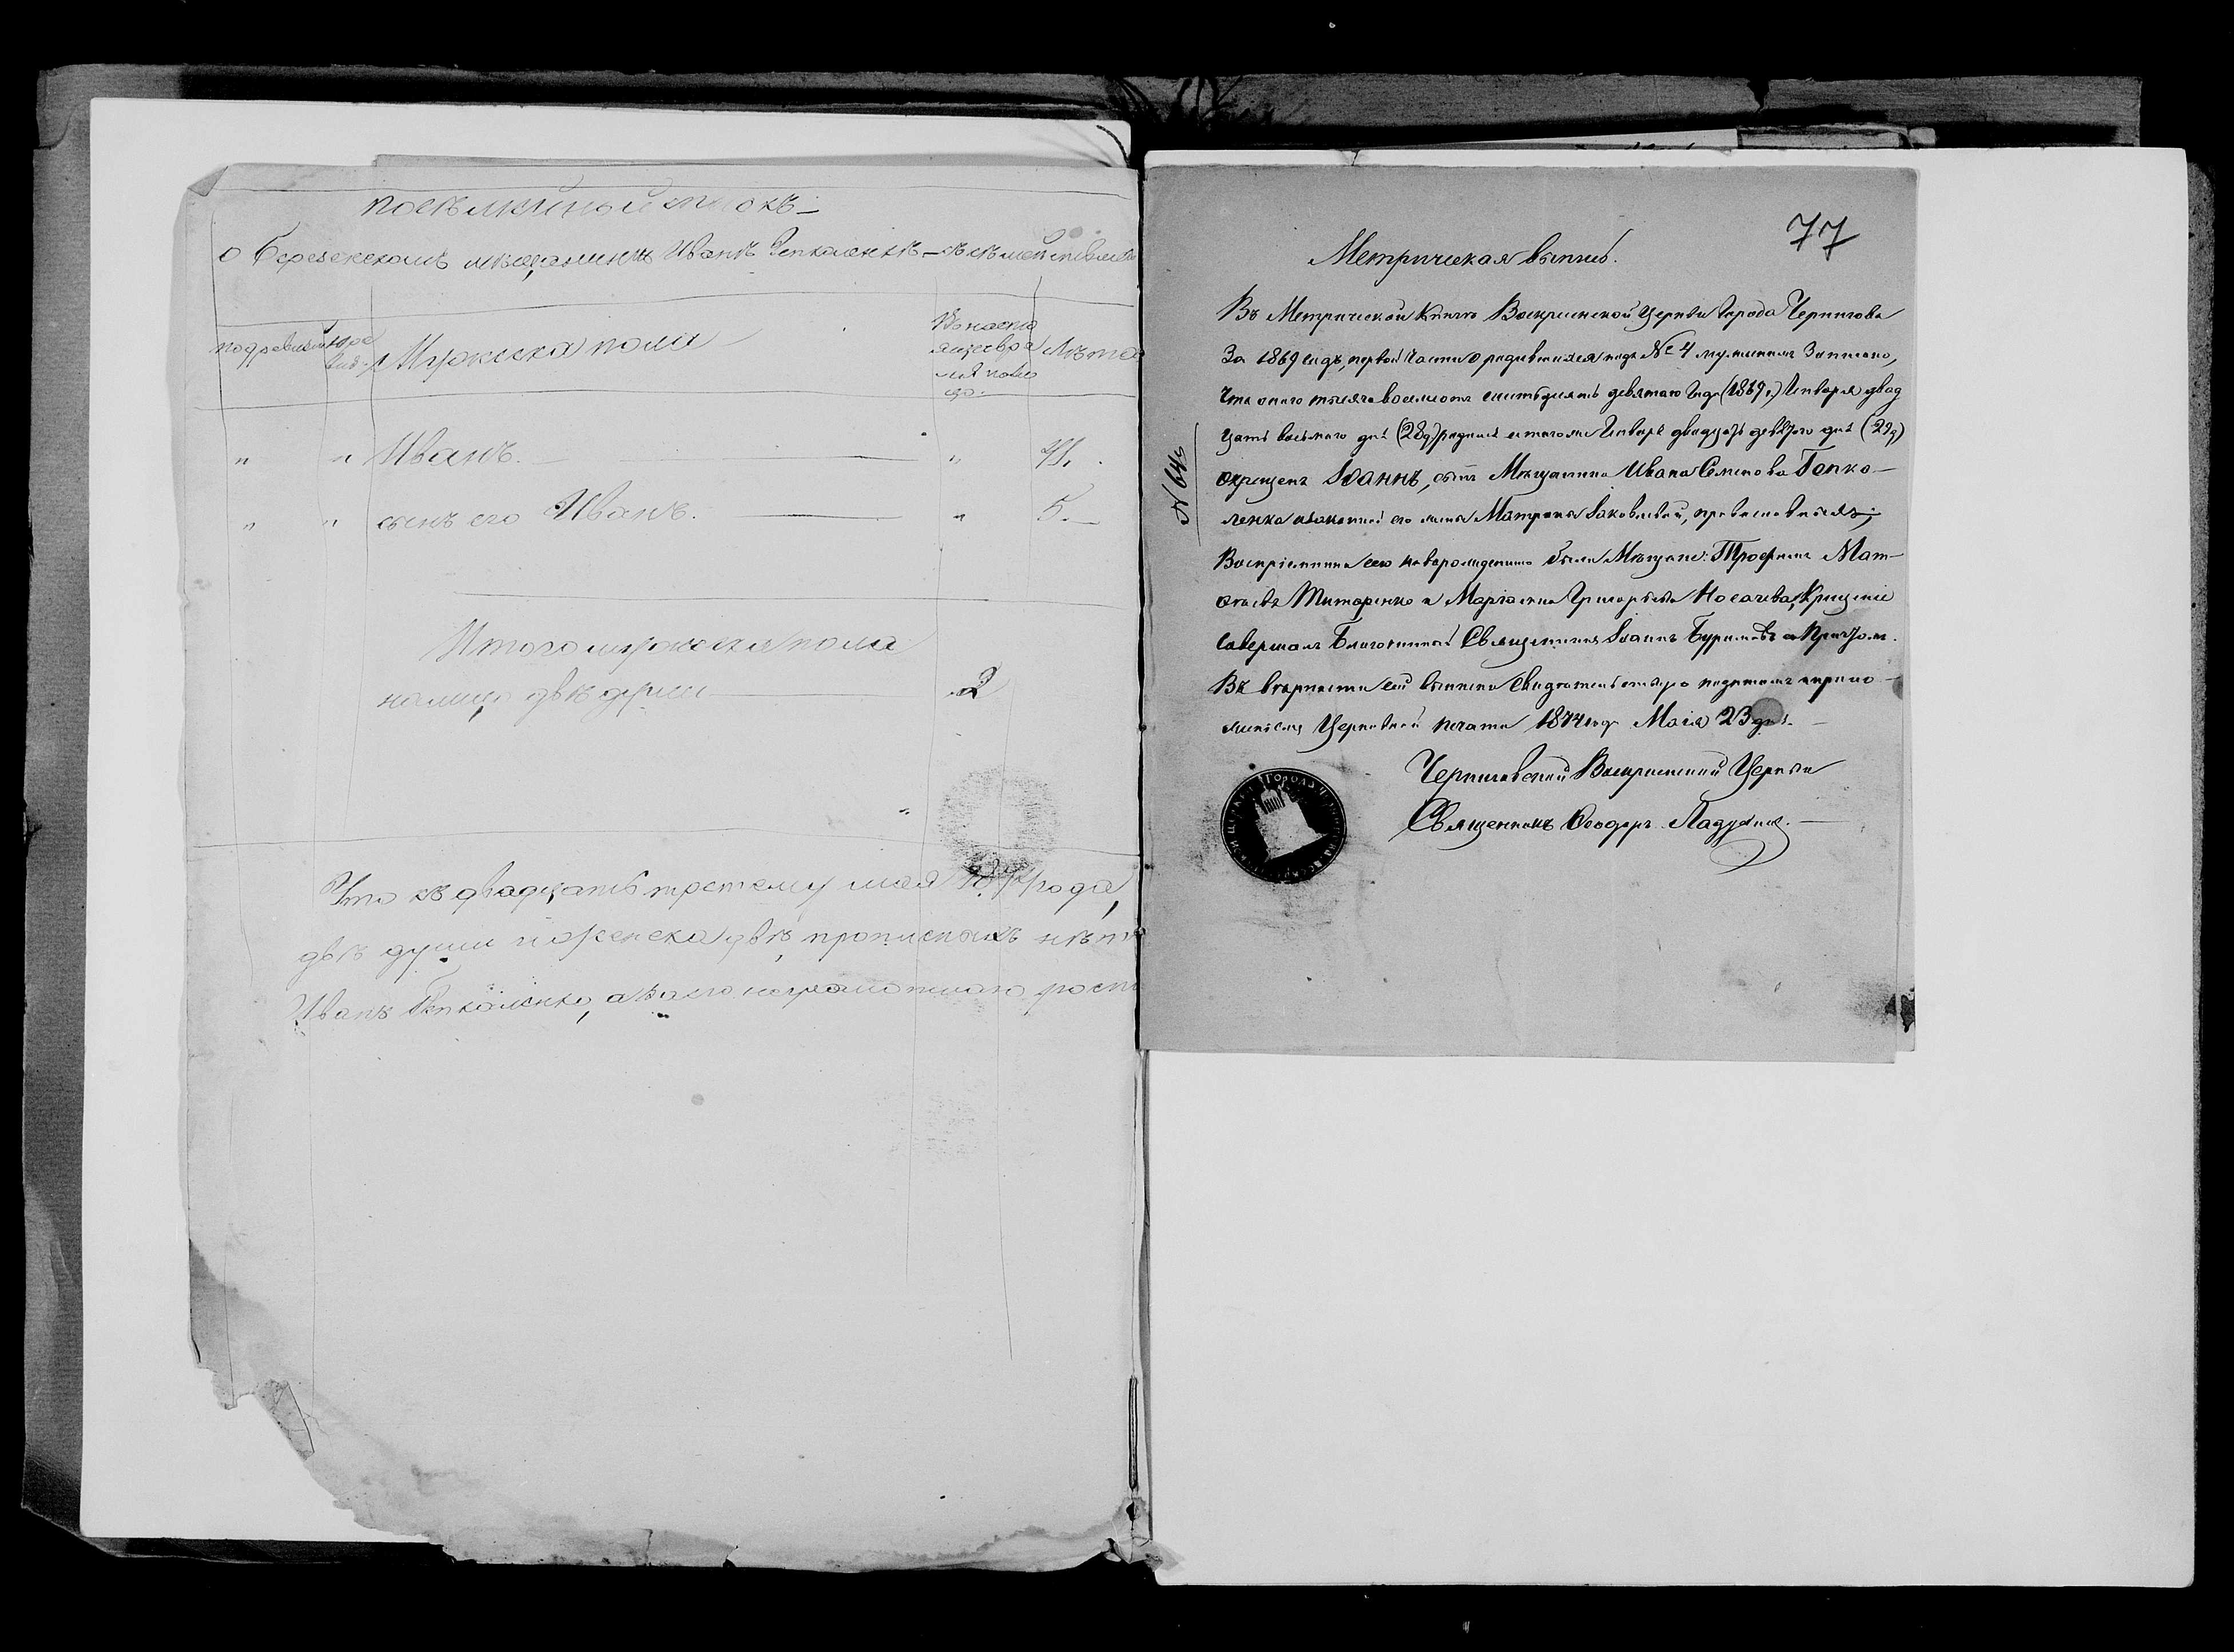 посемейный список
о Березнскомъ мѣщанинѣ Иванѣ
по ревизіи
Мужеска пола
Лѣта
" " Иванъ. " 41.
" " сынъ его Иванъ. " 5.
Итого мужеска пола
на лицо двѣ души 2
Что къ двадцать третему мая года,
двѣ души и женска двѣ, прописныхъ нѣтъ
Иванъ а за его неграмотнаго
77
Метрическая выпись.
Въ Метрической Книгѣ Воскресенской Церкви Города Чернигова
За 1869 годъ, первой части о родившихся подъ № 4 мужескимъ Записано,
Что оного тысяча восемсотъ шестьдесятъ девятаго Года (1869 г.) Января двад
цать восьмаго дня (28 д) родился а тогоже Января двадцать девятого дня (29 д)
окрещенъ Іоаннъ, сынъ Мѣщанина Ивана Семенова Гопка-
ленка и законной его жены Матроны Іаковлевой, православныхъ;
Воспріемники сего новорожденнаго были Мѣщане: Трофимъ Мат-
ѳѣевъ Титаренко и Григорьева Носачева, Крещеніе
совершалъ Благочинный Священникъ Іоаннъ Буримовъ съ Причтомъ.
Въ вѣрности сей выписи Свидѣтельствую подписомъ и прило-
женіемъ Церковной печати 1874 года Маія 23 дня.
Черниговской Воскресенской Церкви
Священникъ Ѳеодоръ
№ 64